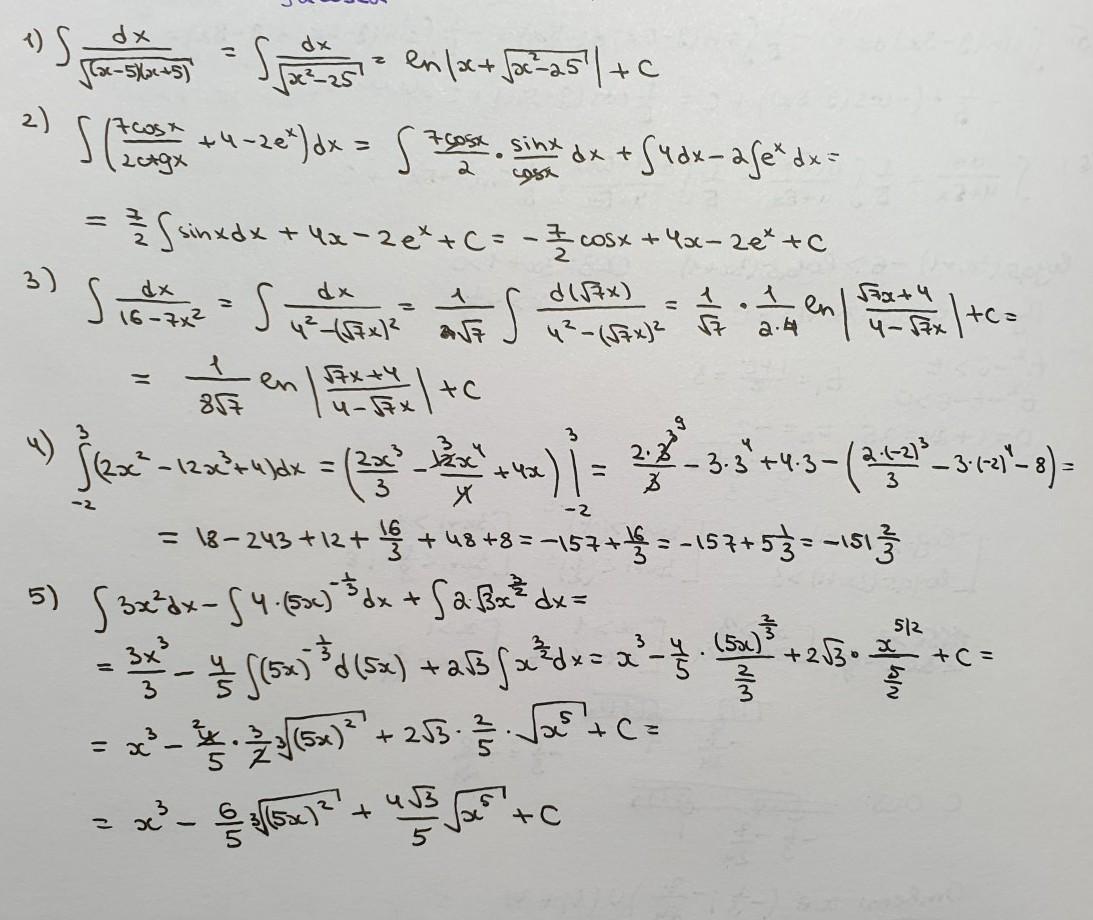 1) ∫ dx/√((x-5)(x+5)) = ∫ dx/√(x²-25) = ln|x+√(x²-25)| + C
2) ∫ (7cosx/2ctgx + 4 - 2eˣ) dx = ∫ 7cosx/2 · sinx/cosx dx + ∫4dx - 2∫eˣ dx =
= 7/2 ∫ sinxdx + 4x - 2eˣ + C = - 7/2 cosx + 4x - 2eˣ + C
3) ∫ dx/(16-7x²) = ∫ dx/(4²-(√7x)²) = 1/√7 ∫ d(√7x)/(4²-(√7x)²) = 1/√7 · 1/(2·4) ln|(√7x+4)/(4-√7x)| + C =
= 1/(8√7) ln|(√7x+4)/(4-√7x)| + C
4) ∫₋₂³ (2x² - 12x³ + 4)dx = (2x³/3 - 12x⁴/4 + 4x)|₋₂³ = 2·3³/3 - 3·3⁴ + 4·3 - (2·(-2)³/3 - 3·(-2)⁴ - 8) =
= 18 - 243 + 12 + 16/3 + 48 + 8 = -157 + 16/3 = -157 + 5 1/3 = -151 2/3
5) ∫ 3x²dx - ∫ 4·(5x)^(-1/3) dx + ∫ 2·√3x^(3/2) dx =
= 3x³/3 - 4/5 ∫(5x)^(-1/3) d(5x) + 2√3 ∫ x^(3/2) dx = x³ - 4/5 · (5x)^(2/3)/(2/3) + 2√3 · x^(5/2)/(5/2) + C =
= x³ - 4/5 · 3/2 ³√((5x)²) + 2√3 · 2/5 · √(x⁵) + C =
= x³ - 6/5 ³√((5x)²) + 4√3/5 √(x⁵) + C